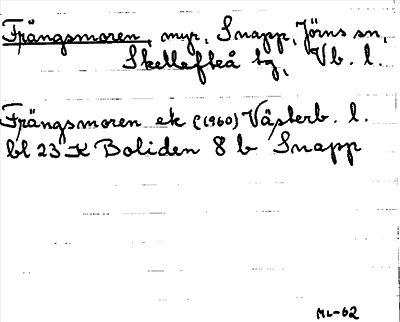 Frängsmoren, myr, Snapp, Jörns sn,
Skellefteå tg, Vb. l.
Frängsmoren ek (1960) Västerb. l.
bl 23 K Boliden 8 b Snapp
ML-62